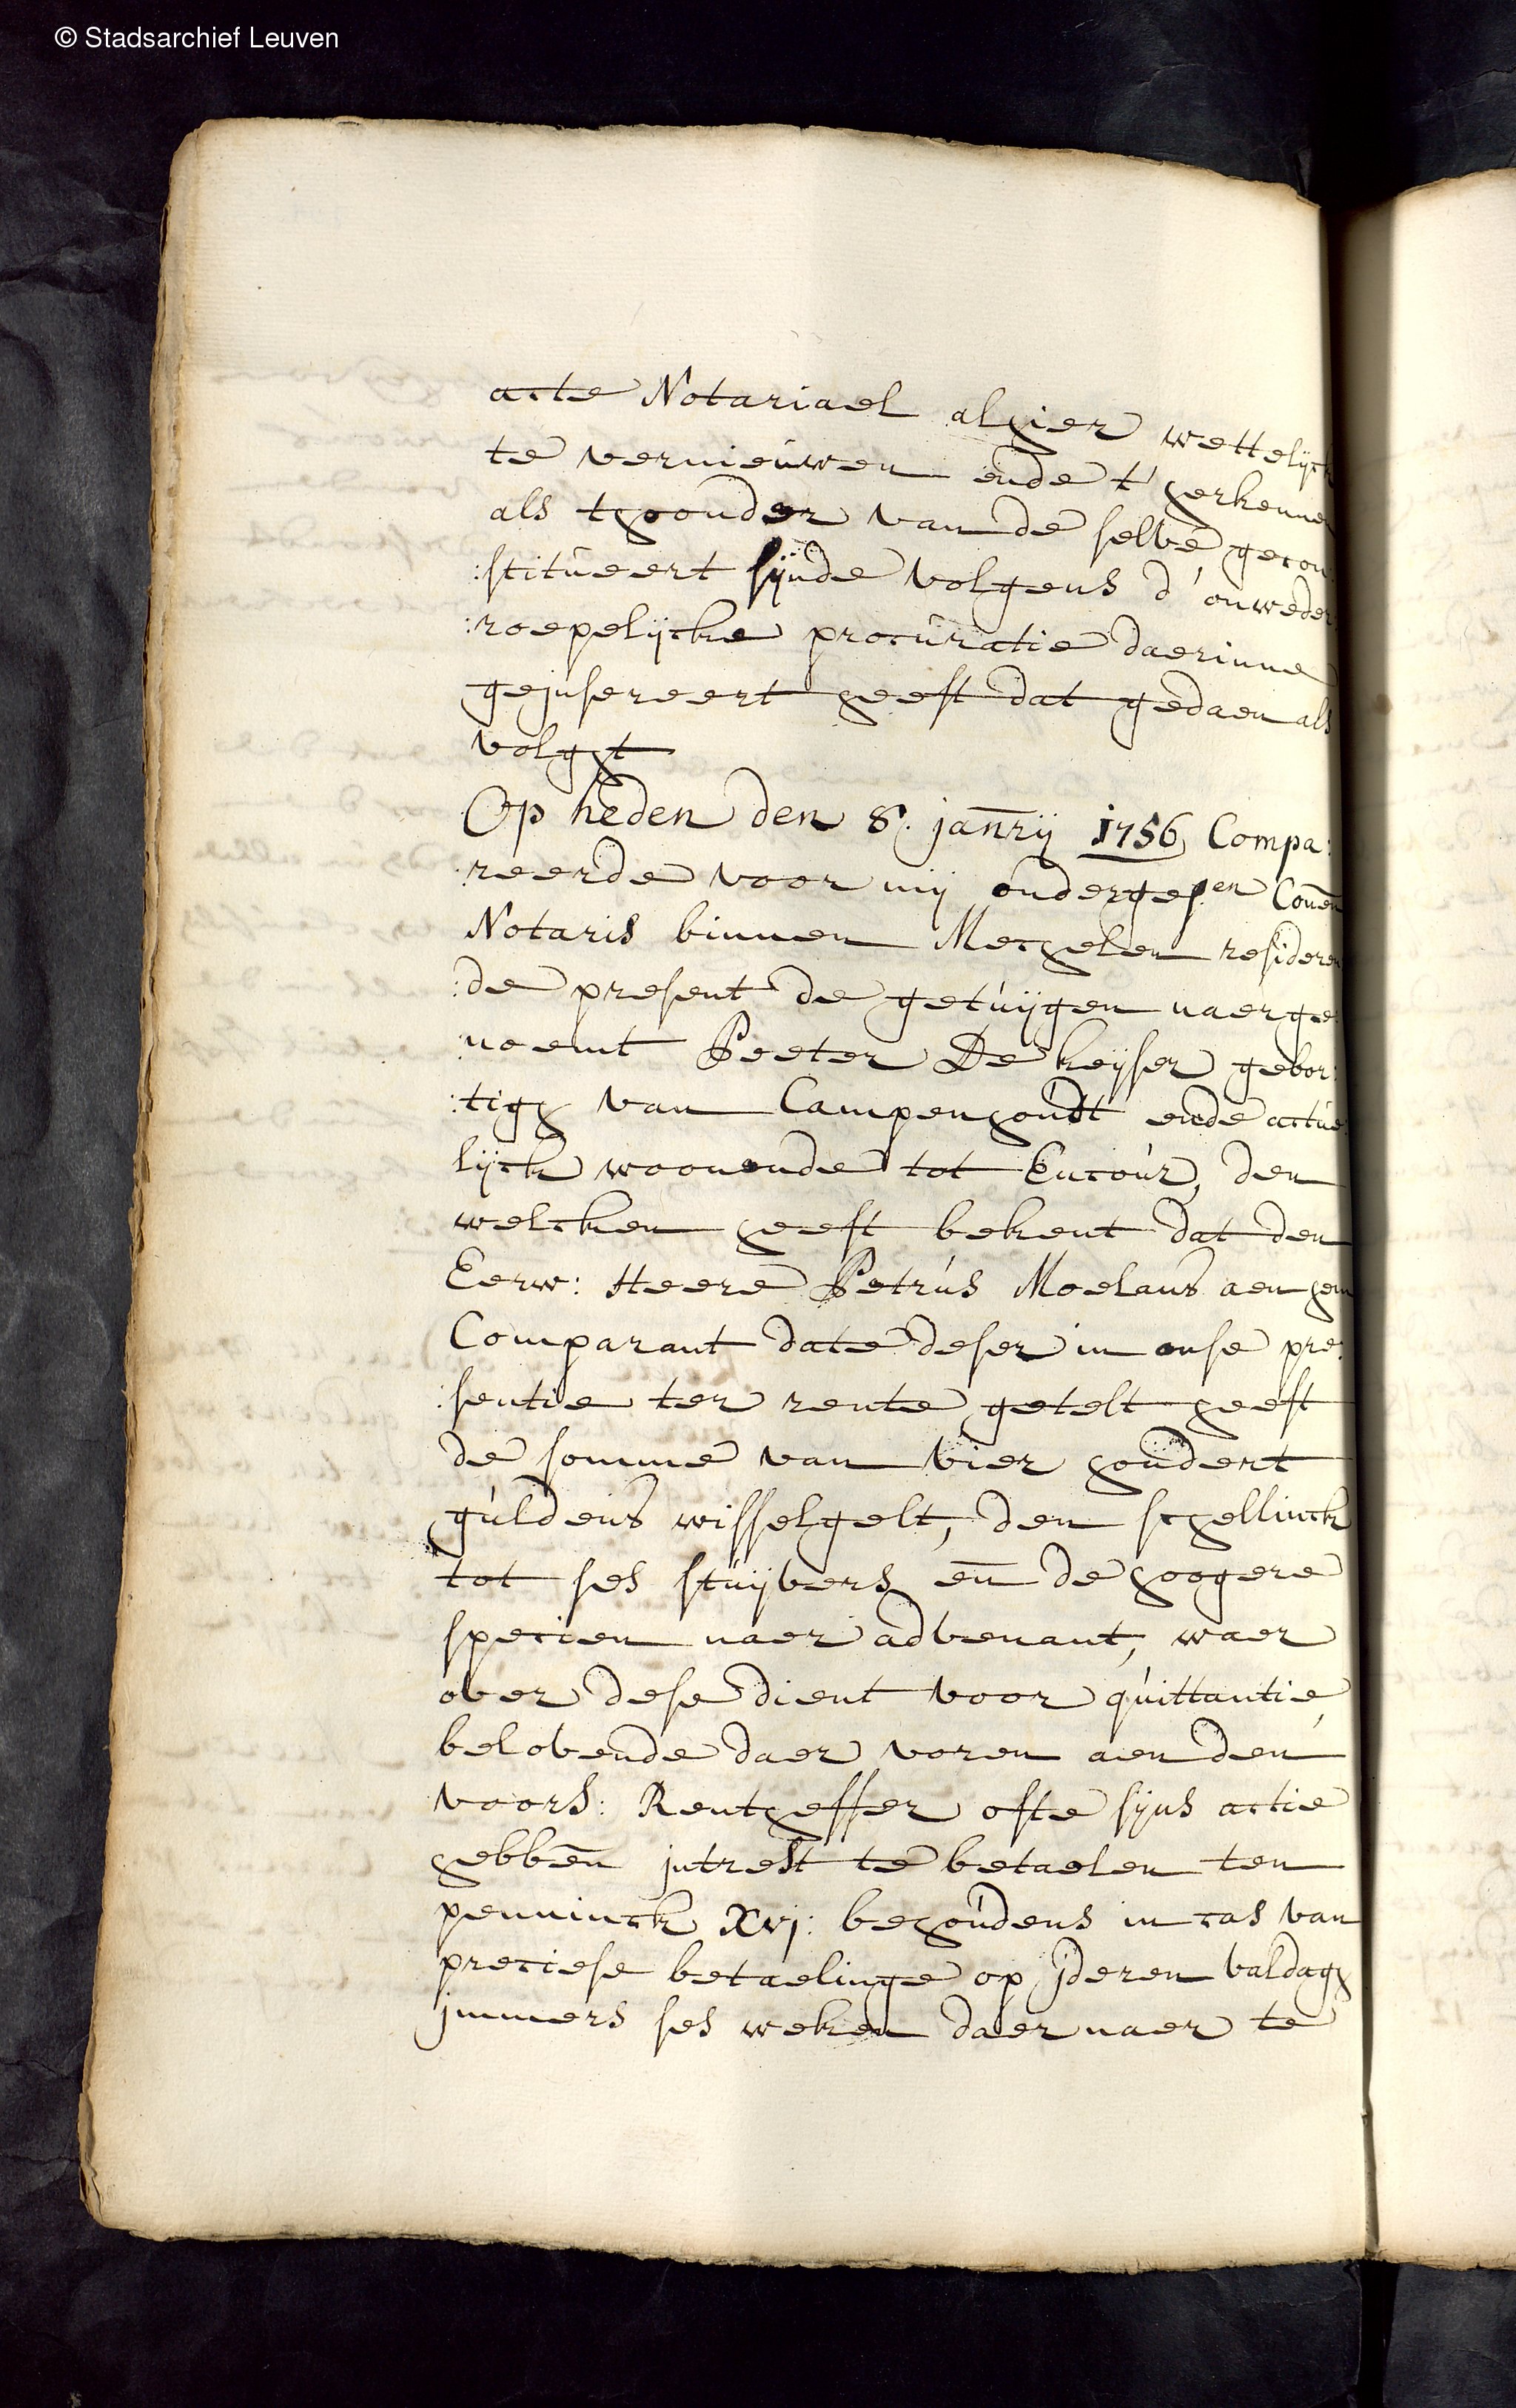 © Stadsarchief Leuven
acte Notariael alhier wettelijck
te vernieúwen ende t' herkennen
als thoonder van de selve gecon:
:stitúeert sijnde volgens d'onweder:
:roepelijcke procúratie daerinne
gejnsereert heeft dat gedaen als
volght
Op heden den 8. jan̄rij 1756 Compa:
:reerde voor mij ondergesen Conēn
Notaris binnen Mechelen resideren
:de present de getúijgen naerge:
:noemt Peeter De keijser gebor:
:tigh van Campenhoúdt ende actúe:
lijck woonende tot Encoúr, den
welcken heeft bekent dat den
Eerw: Heere Petrús Moelans aen hem
Comparant date deser in onse pre:
:sentie ter rente getelt heeft
de somme van vier hondert
gúldens wisselgelt, den schellinck
tot ses stúijvers en̄ de hoogere
specien naer advenant, waer
over dese dient voor qúittantie,
belovende daer voren aen den
voors: Rentheffer ofte sijns actie
hebbēn jntrest te betaelen ten
penninck XVj: behoúdens in cas van
preciese betaelinge op jderen valdagh
jmmers ses weken daer naer te